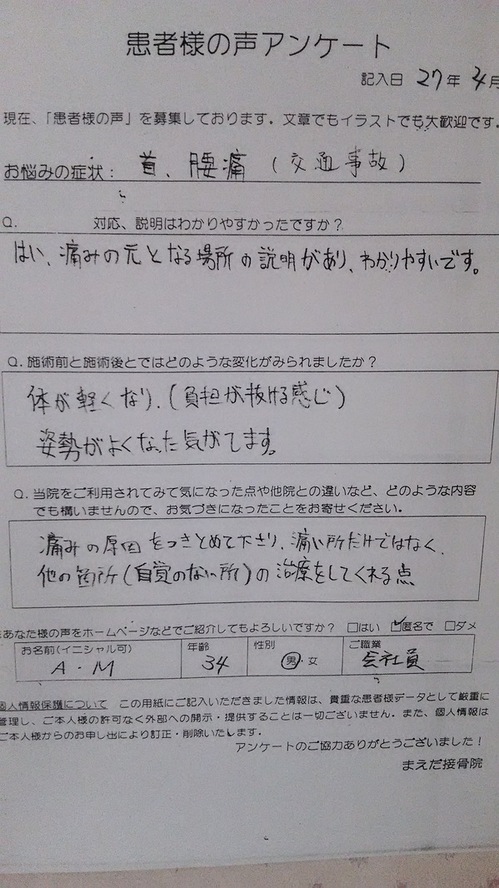 患者様の声アンケート
記入日 27年 4月
現在、「患者様の声」を募集しております。文章でもイラストでも大歓迎です。
お悩みの症状: 首、腰痛 (交通事故)
Q. 対応、説明はわかりやすかったですか?
はい、痛みの元となる場所の説明があり、わかりやすいです。
Q. 施術前と施術後とではどのような変化がみられましたか?
体が軽くなり、(負担が抜ける感じ)
姿勢がよくなった気がします。
Q. 当院をご利用されてみて気になった点や他院との違いなど、どのような内容
でも構いませんので、お気づきになったことをお寄せください。
痛みの原因をつきとめて下さり、痛い所だけではなく、
他の箇所(自覚のない所)の治療をしてくれる点
あなた様の声をホームページなどでご紹介してもよろしいですか? □はい ☑匿名で □ダメ
お名前(イニシャル可) 年齢 性別 ご職業
A・M 34 男・女 会社員
個人情報保護について この用紙にご記入いただきました情報は、貴重な患者様データとして厳重に
管理し、ご本人様の許可なく外部への開示・提供することは一切ございません。また、個人情報は
ご本人様からのお申し出により訂正・削除いたします。
アンケートのご協力ありがとうございました!
まえだ接骨院